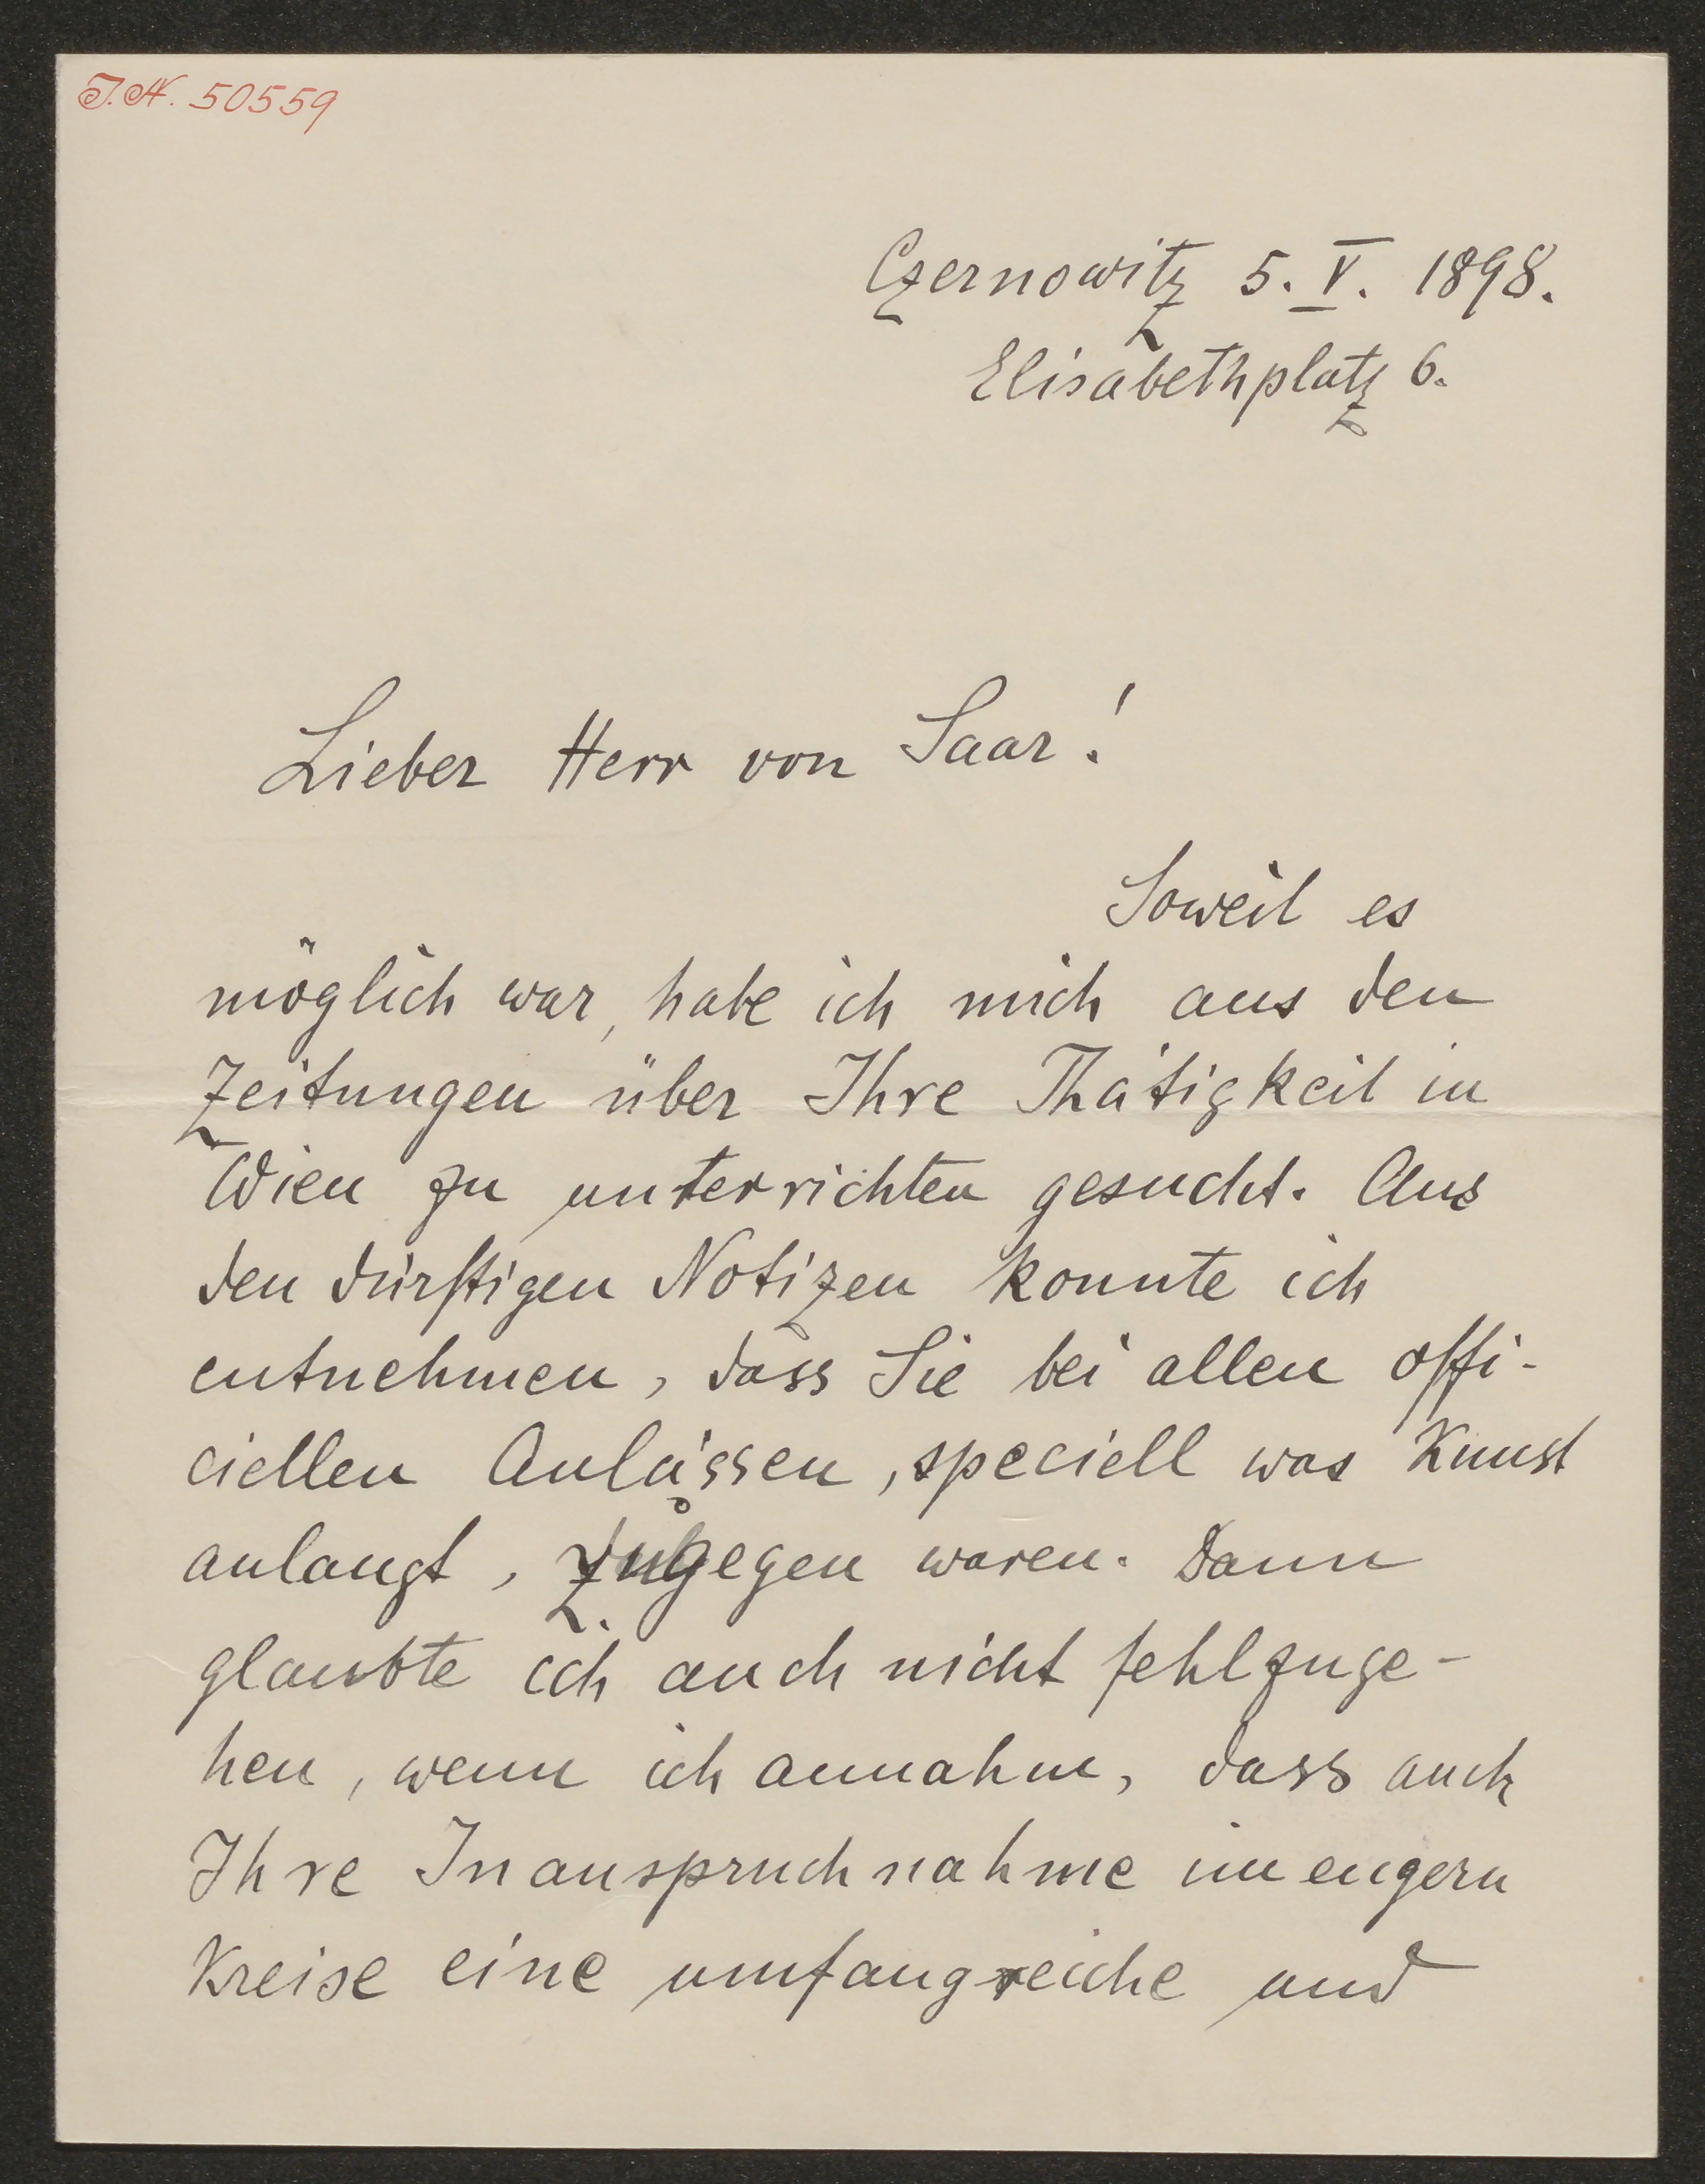 J.N. 50559
Czernowitz 5. V. 1898.
Elisabethplatz 6.
Lieber Herr von Saar!
Soweit es
möglich war, habe ich mich aus den
Zeitungen über Ihre Thätigkeit in
Wien zu unterrichten gesucht. Aus
den dürftigen Notizen konnte ich
entnehmen, dass Sie bei allen offi-
ciellen Anlässen, speciell was Kunst
anlangt, zugegen waren. Dann
glaubte ich auch nicht fehlzuge-
hen, wenn ich annahm, dass auch
Ihre Inanspruchnahme im engern
Kreise eine umfangreiche und